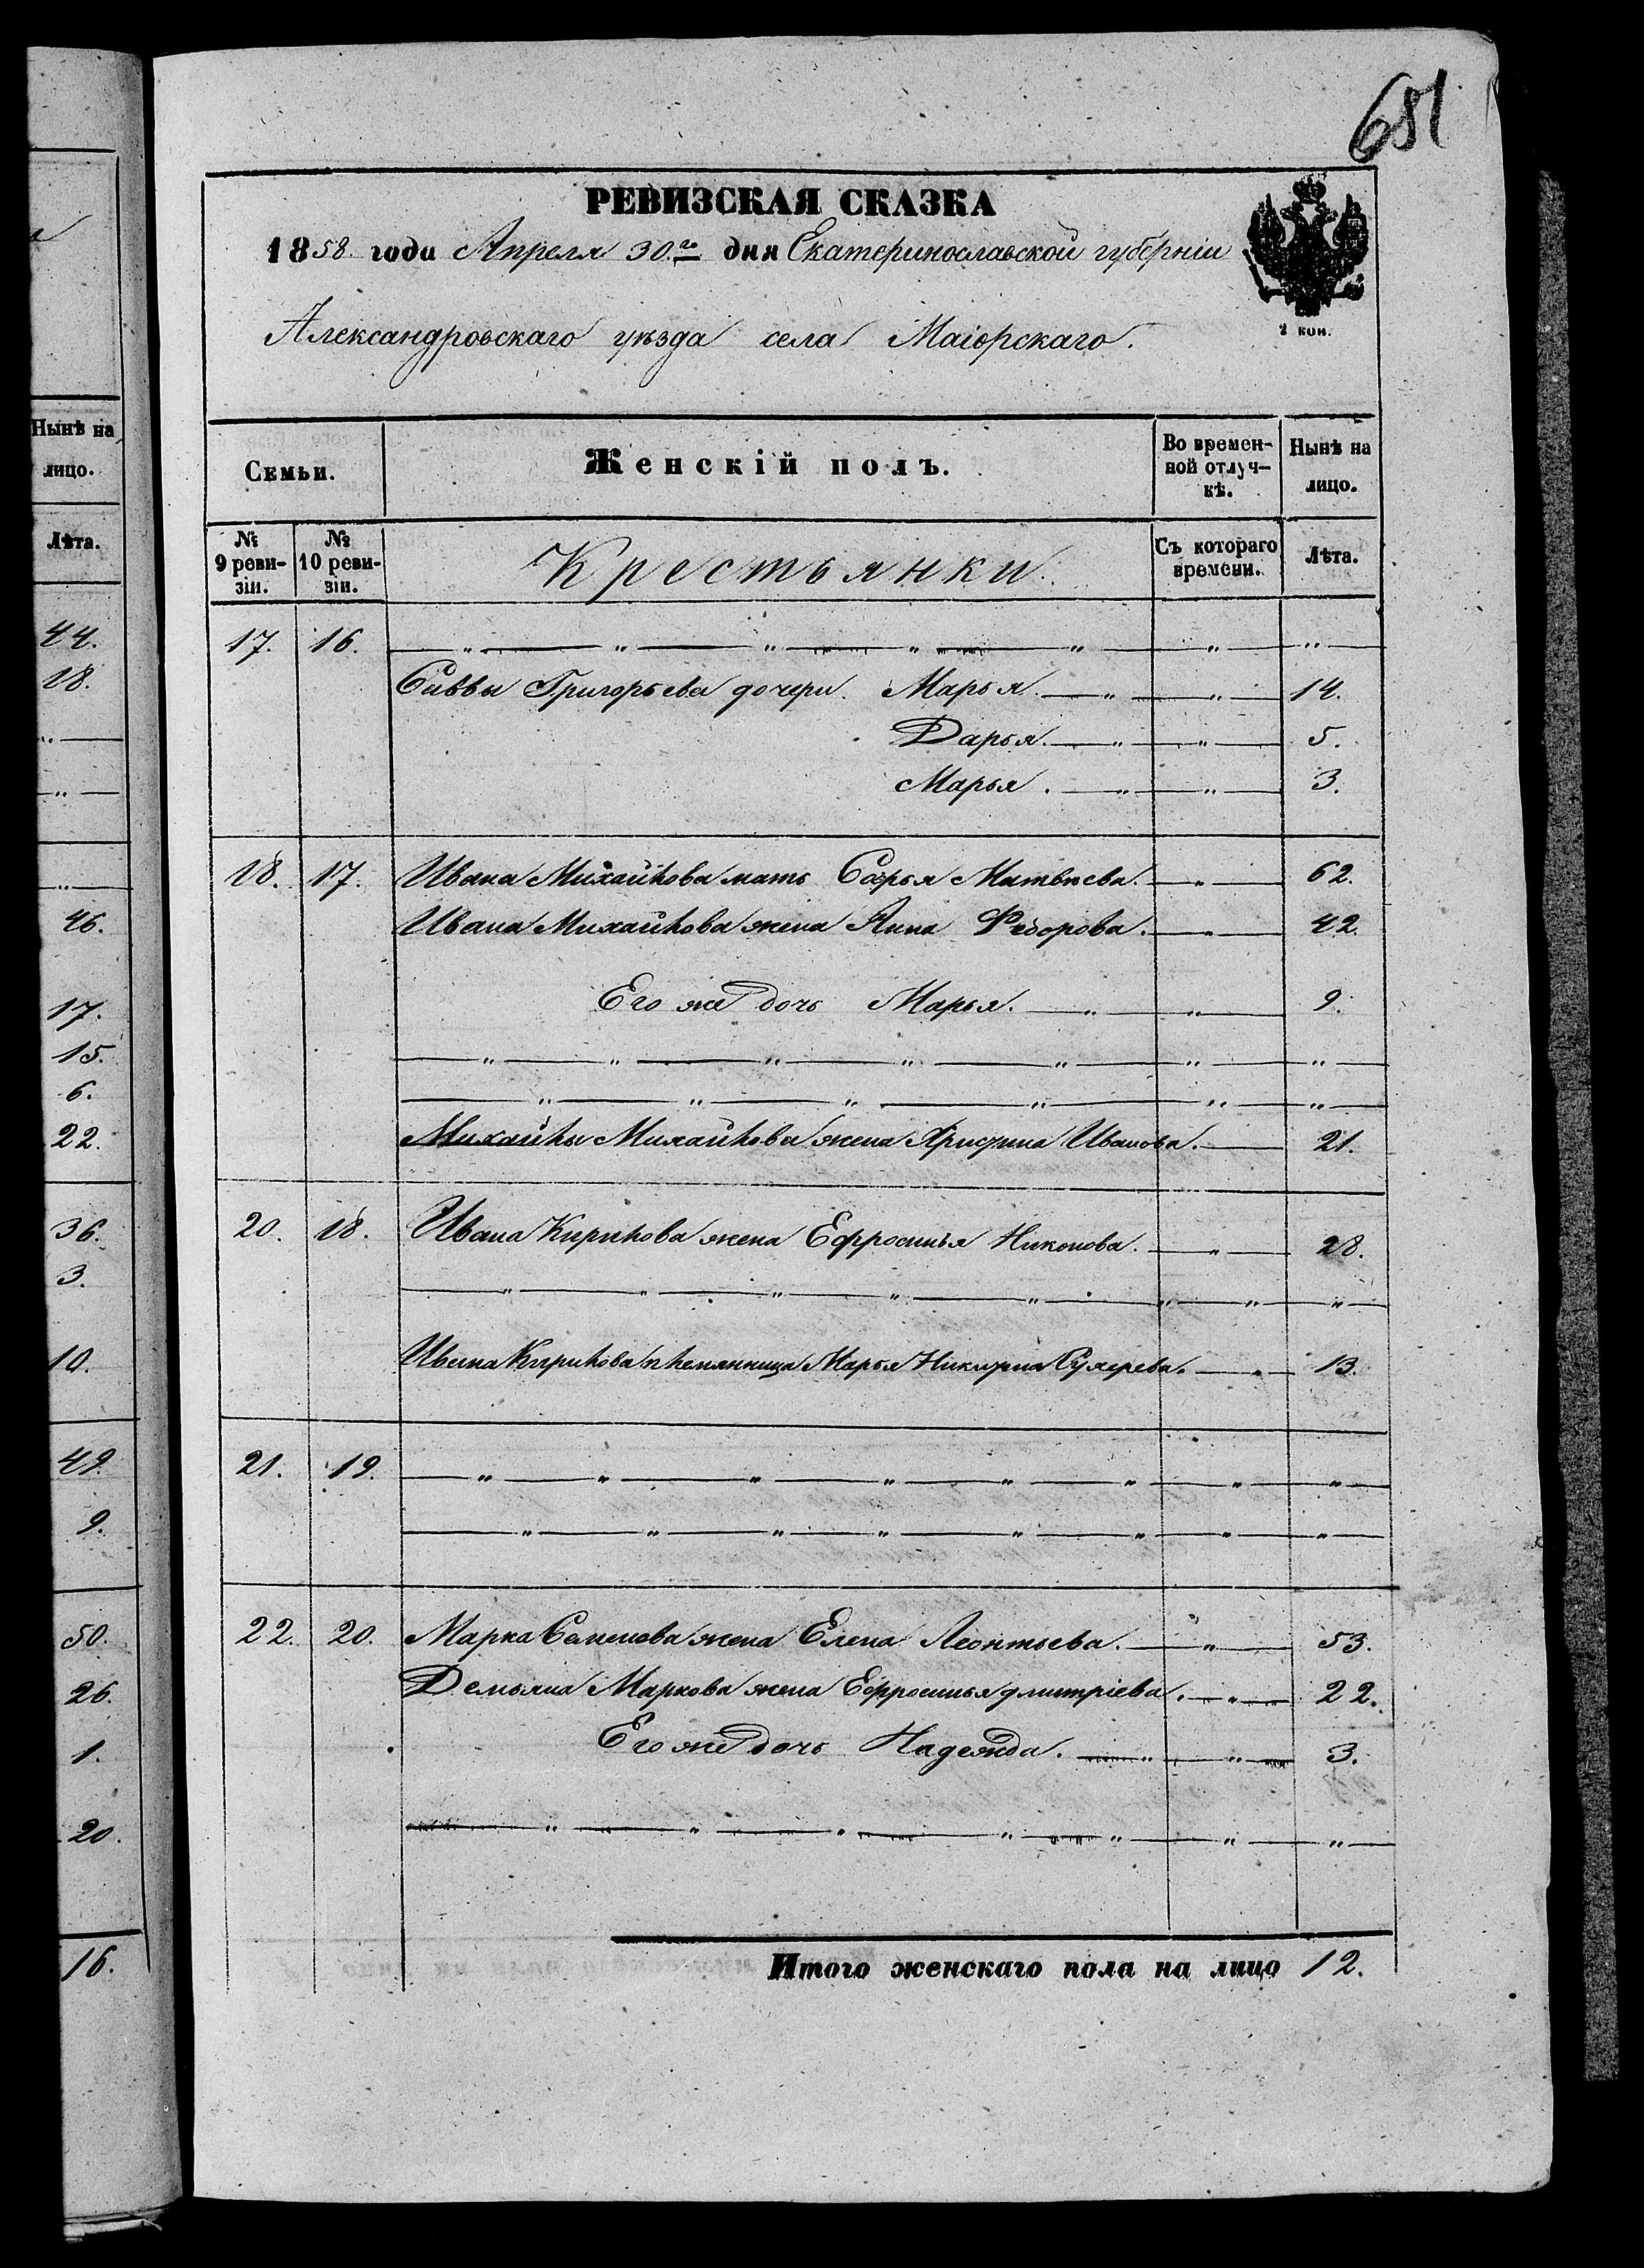 681
РЕВИЗСКАЯ СКАЗКА
1858. года Апреля 30.го дня Екатеринославской губерніи
Александровскаго уѣзда села Маіорскаго.
2 коп.
Нынѣ на лицо.
Лѣта.
44.
18.
"
"
"
46.
17.
15.
6.
22.
36.
3.
10.
49.
9.
50.
26.
1.
20.
16.
Семьи. Женскій полъ. Во времен-ной отлуч-кѣ. Нынѣ на лицо.
№ 9 реви-зіи. № 10 реви-зіи. Крестьянки. Съ котораго времени. Лѣта.
17. 16. " " " " " " "
Саввы Григорьева дочери. Марья. " " 14.
Дарья. " " 5.
Марья. " " 3.
18. 17. Ивана Михайлова мать Матвѣева. " 62.
Ивана Михайлова жена Анна Федорова. " 42.
Его же дочь Марья. " " 9.
" " " " " " "
" " " " " "
Михайлы Михайлова жена Христина Иванова. 21.
20. 18. Ивана Кирилова жена Ефросинья Никонова. " 28.
" " " " " " " "
Ивана Кирилова племянница Марья Никитина " 13.
21. 19. " " " " " " " "
" " " " " " " "
22. 20. Марка Семенова жена Елена Леонтьева. " 53.
Демьяна Маркова жена Ефросинья Дмитріева. " 22.
Его же дочь Надежда. " " 3.
" " " " " " "
Итого женскаго пола на лицо 12.